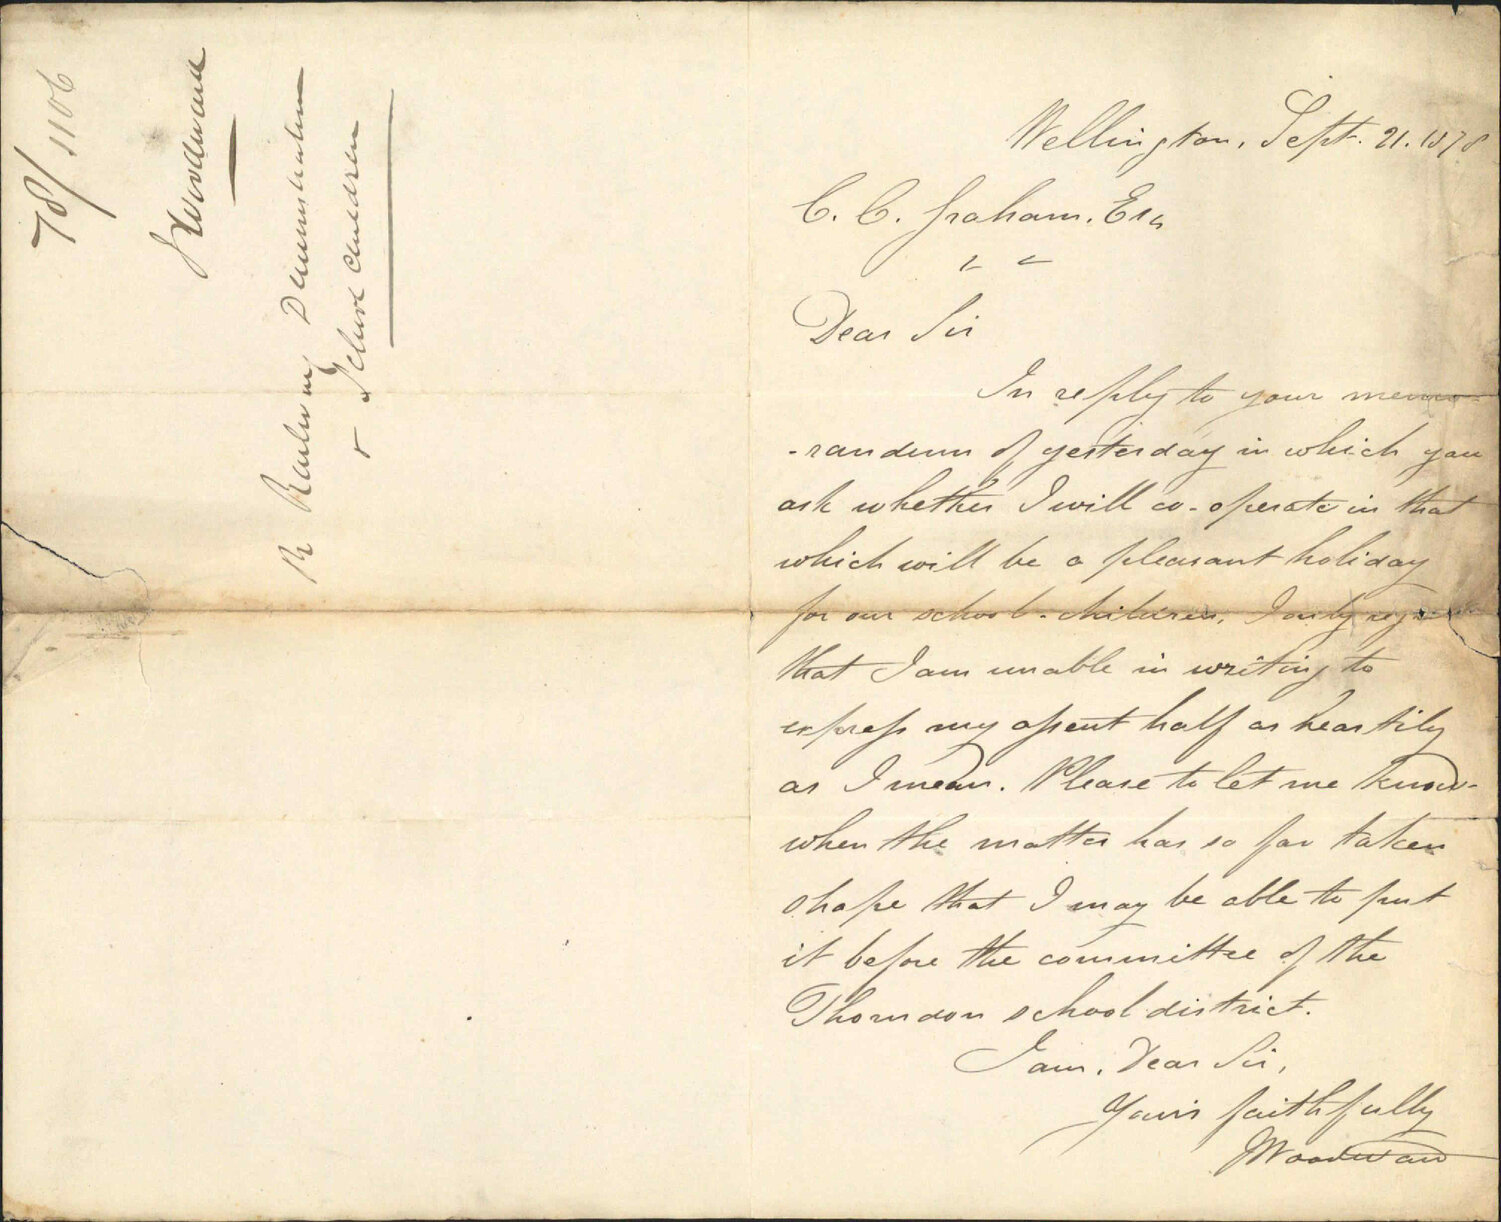 78/1106
J Woodward
R Railway Demonstration
& School Children
Wellington, Sept. 21. 1878
C. C. Graham. Esq
Dear Sir
In reply to your memo-
-randum of yesterday in which you
ask whether I will co-operate in that
which will be a pleasant holiday
for our school-children, I only
that I am unable in writing to
express my assent half as heartily
as I mean. Please to let me know
when the matter has so far taken
shape that I may be able to put
it before the committee of the
Thorndon school district.
I am, Dear Sir,
Yours faithfully
JWoodward